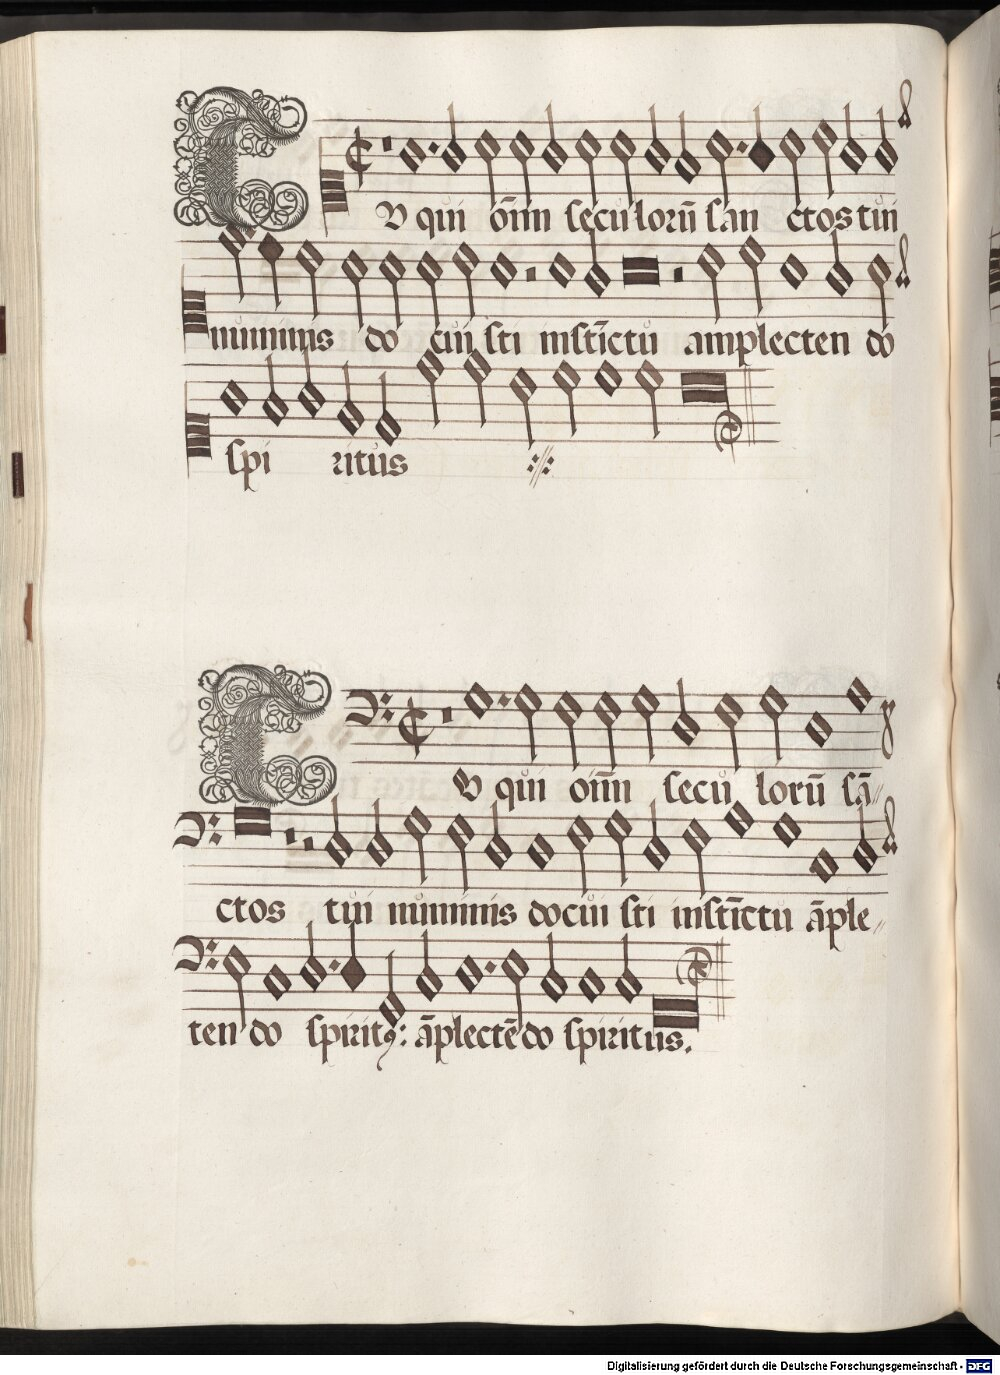 TU qui om̄n seculorū san ctos tui
numinis do cui sti instīctu amplecten do
spi ritus
TU qui oīm̄ secu lorū sā-
ctos tui numinis docui sti instīctu āple-
ten do spiritꝰ: āplectēdo spiritus.
Digitalisierung gefördert durch die Deutsche Forschungsgemeinschaft - DFG